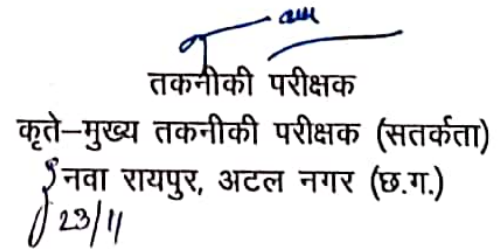 तकनीकी परीक्षक
कृते–मुख्य तकनीकी परीक्षक (सतर्कता)
नवा रायपुर, अटल नगर (छ.ग.)
23/11